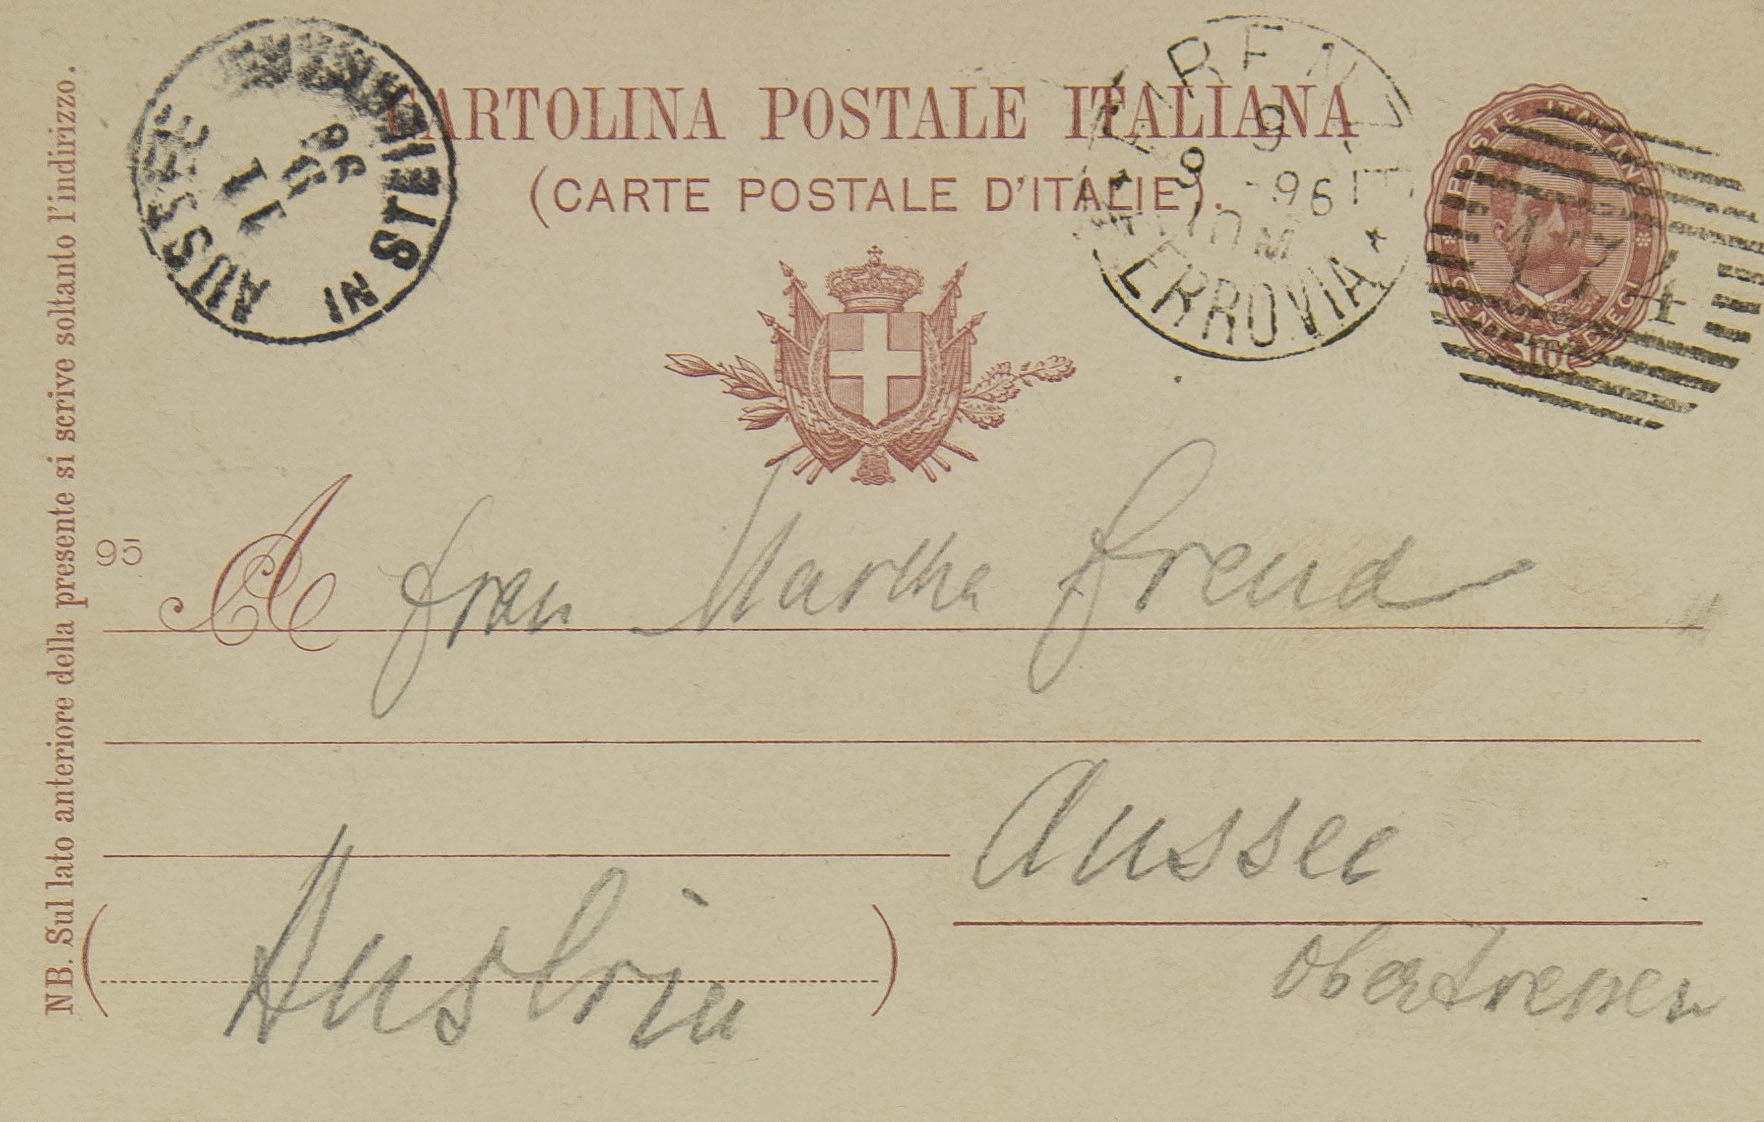 CARTOLINA POSTALE ITALIANA
(CARTE POSTALE D'ITALIE).
NB. Sul lato anteriore della presente si scrive soltanto l'indirizzo.
AUSSEE IN STEIERMARK
11
9
96
FIRENZE
9
9 - 96
10 M
FERROVIA *
POSTE ITALIANE
10
174
95
A Frau Martha Freud
Aussee
Austria
Obertressen